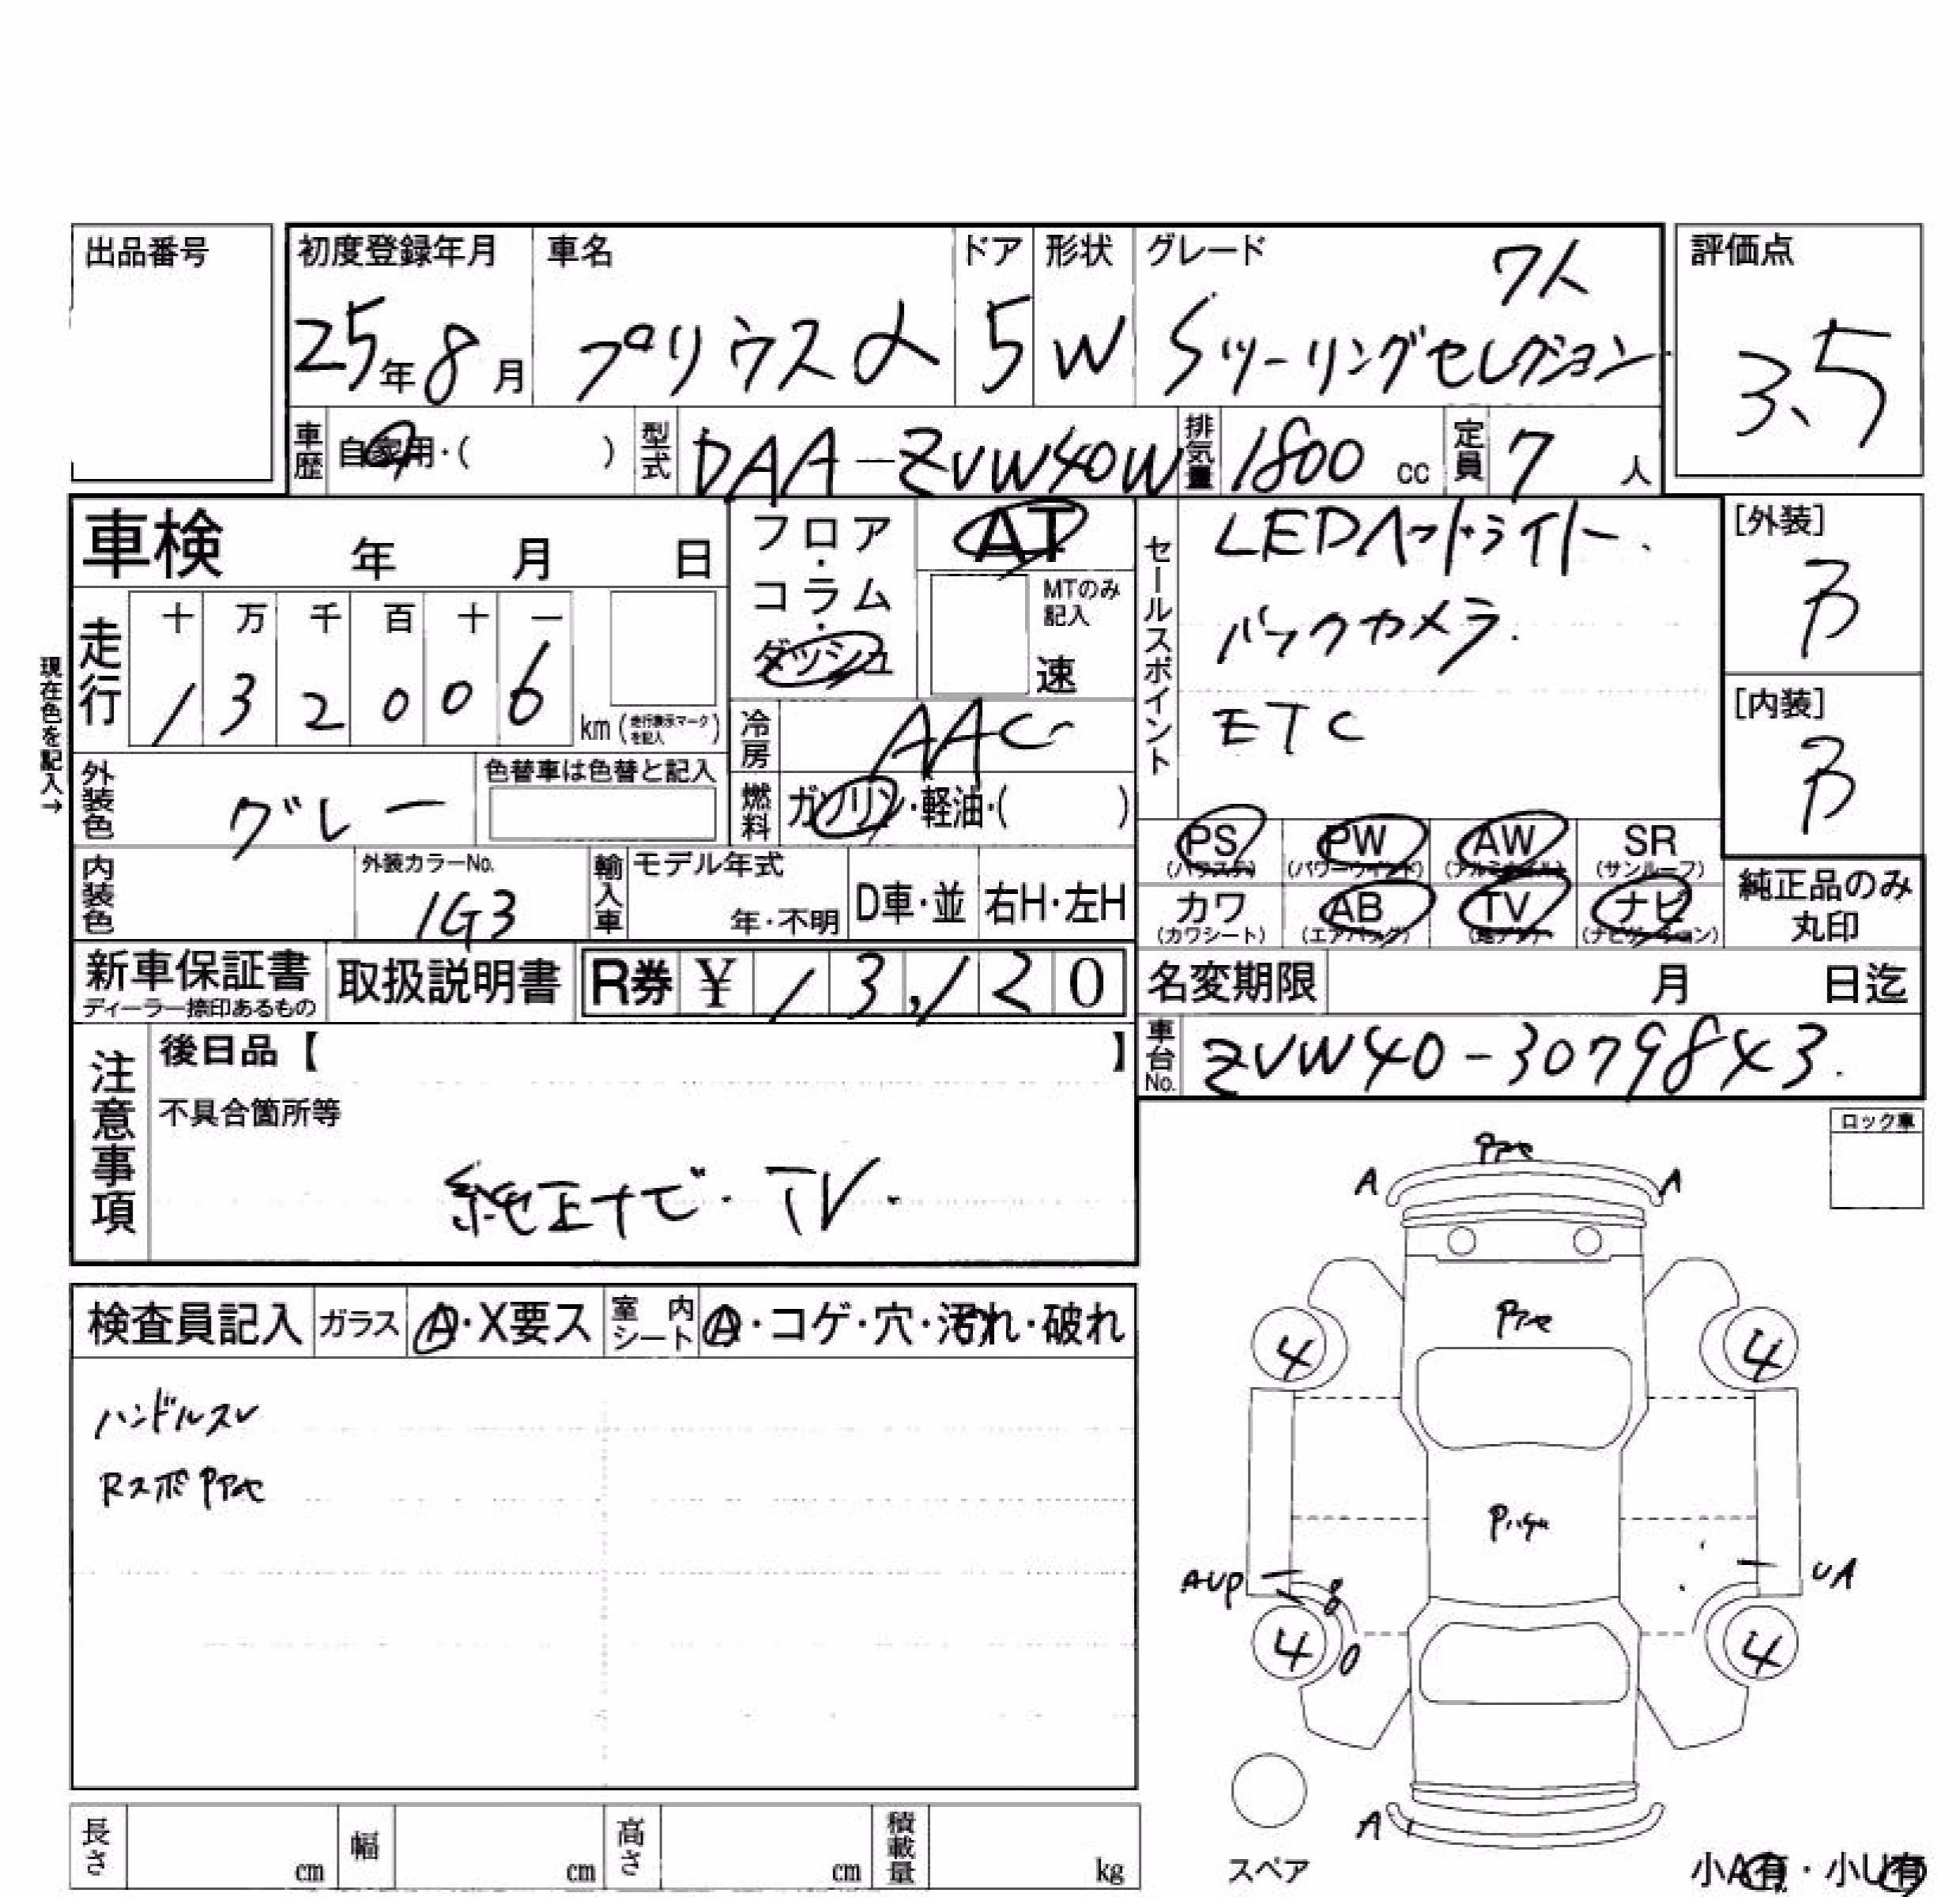 出品番号
初度登録年月 車名 ドア 形状 グレード 7人 評価点
25年8月 プリウスα 5 W Sツーリングセレクション 3.5
車歴 自家用・( ) 型式 DAA-ZVW40W 排気量 1800 cc 定員 7 人
車検 年 月 日
フロア・コラム・ダッシュ
AT
MTのみ記入
速
現在色を記入→
走行 十 万 千 百 十 一
1 3 2 0 0 6 km (走行表示マークを記入)
冷房 AAC
燃料 ガソリン・軽油・( )
外装色 グレー 色替車は色替と記入
内装色 外装カラーNo. 1G3 輸入車 モデル年式 年・不明 D車・並 右H・左H
セールスポイント
LEDヘッドライト.
バックカメラ.
ETC
[外装] B
[内装] B
PS PW AW SR
(パワステ) (パワーウインド) (アルミホイル) (サンルーフ)
カワ AB TV ナビ
(カワシート) (エアバッグ) (地デジ) (ナビゲーション)
純正品のみ丸印
新車保証書 ディーラー捺印あるもの 取扱説明書 R券 ¥ 13,120
名変期限 月 日迄
車台No. ZVW40-3079843.
注意事項
後日品【 】
不具合箇所等
純正ナビ・TV.
ロック車
検査員記入 ガラス A・X要ス 室内シート A・コゲ・穴・汚れ・破れ
ハンドルスレ
A A
4 4
AUP UA
4 4
A
スペア
長さ cm 幅 cm 高さ cm 積載量 kg
小A有・小U有